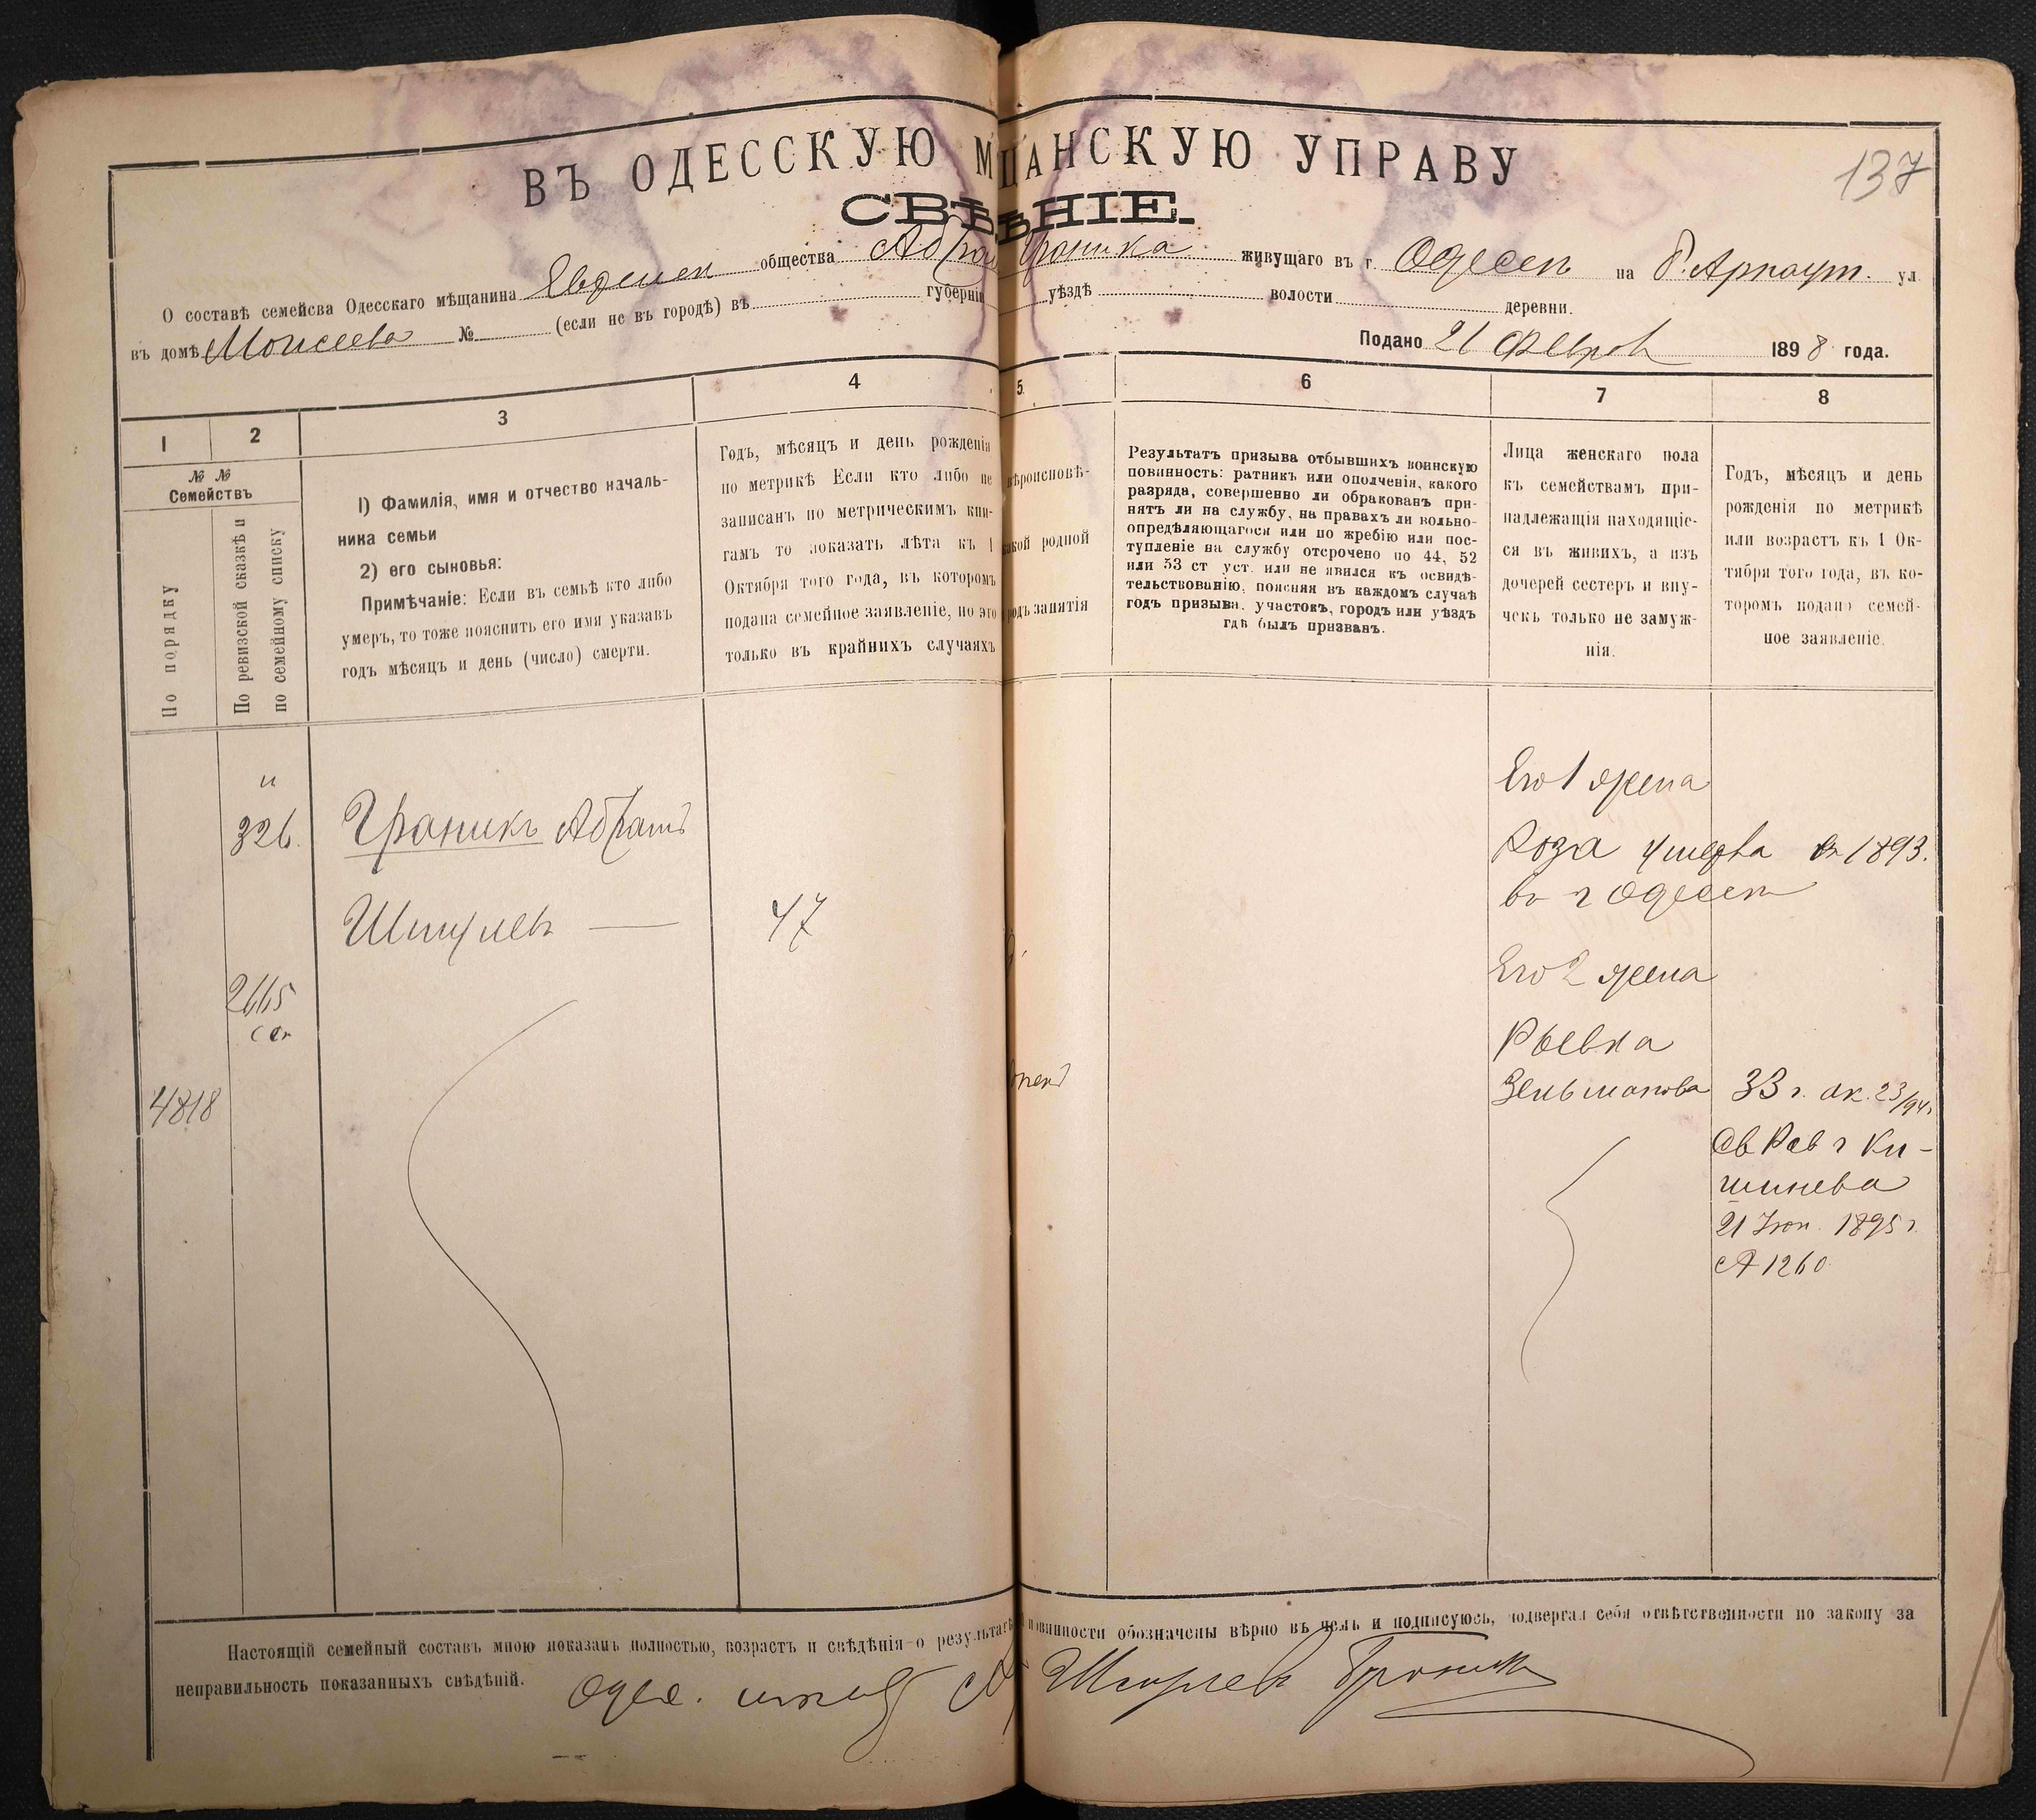 137
ВЪ ОДЕССКУЮ М ЩАНСКУЮ УПРАВУ
СВѢ НІЕ.
О составѣ семейсва Одесскаго мѣщанина общества Абрам Граника живущаго въ г Одессѣ на Б. Арнаут. ул
въ домѣ Моисеева № (если не въ городѣ) въ губерніи уѣздѣ волости деревни.
Подано 21 Феврал 1898 года.
1 2 3 4 5 6 7 8
№ №
Семействъ
По порядку
По ревизской сказкѣ и
по семейному списку
1) Фамилія, имя и отчество началь-
ника семьи
2) его сыновья:
Примѣчаніе: Если въ семьѣ кто либо
умеръ, то тоже пояснить его имя указавъ
годъ мѣсяцъ и день (число) смерти.
Годъ, мѣсяцъ и день рожденія
по метрикѣ Если кто либо не
записанъ по метрическимъ кни-
гамъ то показать лѣта къ 1
Октября того года, въ которомъ
подана семейное заявленіе, но это
только въ крайнихъ случаяхъ
вѣроисповѣ-
акой родной
родъ занятія
Результатъ призыва отбывшихъ воинскую
повинность: ратникъ или ополченія, какого
разряда, совершенно ли обракованъ при-
нятъ ли на службу, на правахъ ли вольно-
опредѣляющагося или по жребію или пос-
тупленіе на службу отсрочено по 44, 52
или 53 ст уст. или не явился къ освидѣ-
тельствованію, поясняя въ каждомъ случаѣ
годъ призыва, участокъ, городъ или уѣздъ
гдѣ былъ призванъ.
Лица женскаго пола
къ семействамъ при-
надлежащія находящіе-
ся въ живихъ, а изъ
дочерей сестеръ и вну-
чекъ только не замуж-
нія.
Годъ, мѣсяцъ и день
рожденія по метрикѣ
или возрастъ къ 1 Ок-
тября того года, въ ко-
торомъ подано семей-
ное заявленіе.
и
326.
Граникъ Абрамъ
Шмулев —
47
2665
4818
Его 1 жена
Роза умерла въ 1893.
въ г Одессѣ
Его 2 жена
Рывка
Зельманова 33 г. ок. 23/94г
Св Рав г Ки-
шинева
21 Іюн. 1895 г.
№ 1260
Настоящій семейный составъ мною показанъ полностью, возрастъ и свѣдѣнія о результатѣ повинности обозначены вѣрно въ чемъ и подписуюсь, подвергая себя отвѣтственности по закону за
неправильность показанныхъ свѣдѣній.
Одес. А Шмулев Граник